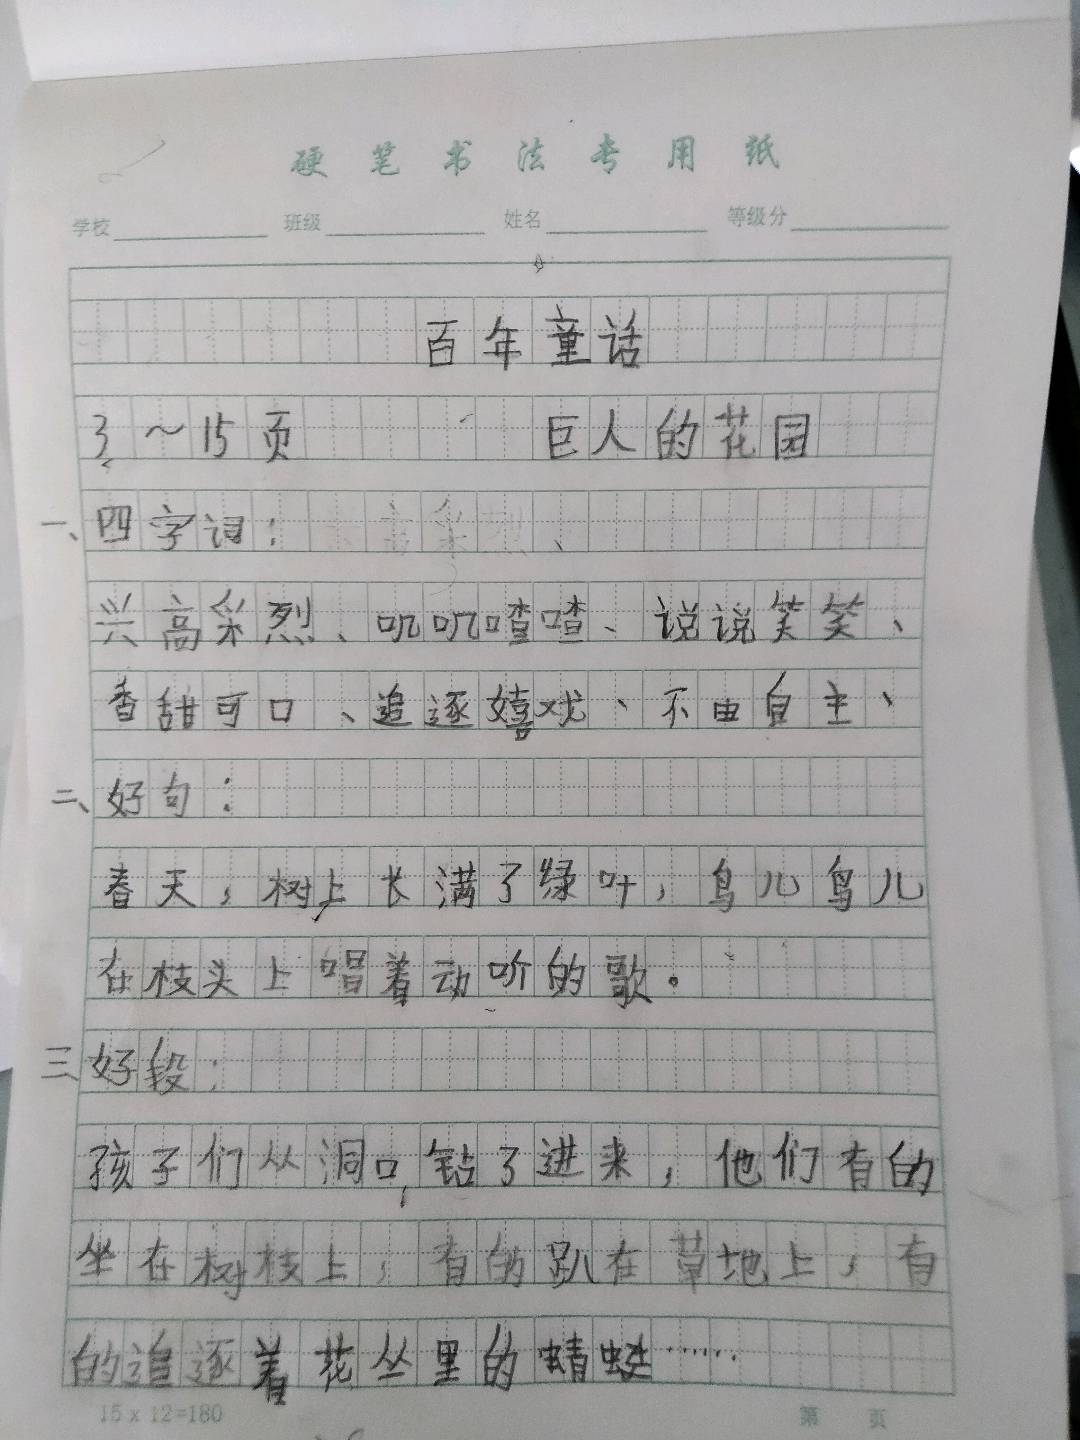 硬笔书法专用纸
学校 班级 姓名 等级分
百年童话
3～15页 巨人的花园
一、四字词：
兴高采烈、叽叽喳喳、说说笑笑、
香甜可口、追逐嬉戏、不由自主、
二、好句：
春天，树上长满了绿叶，鸟儿鸟儿
在枝头上唱着动听的歌。
三、好段：
孩子们从洞口钻了进来，他们有的
坐在树枝上，有的趴在草地上，有
的追逐着花丛里的蜻蜓……
15x12=180 第 页